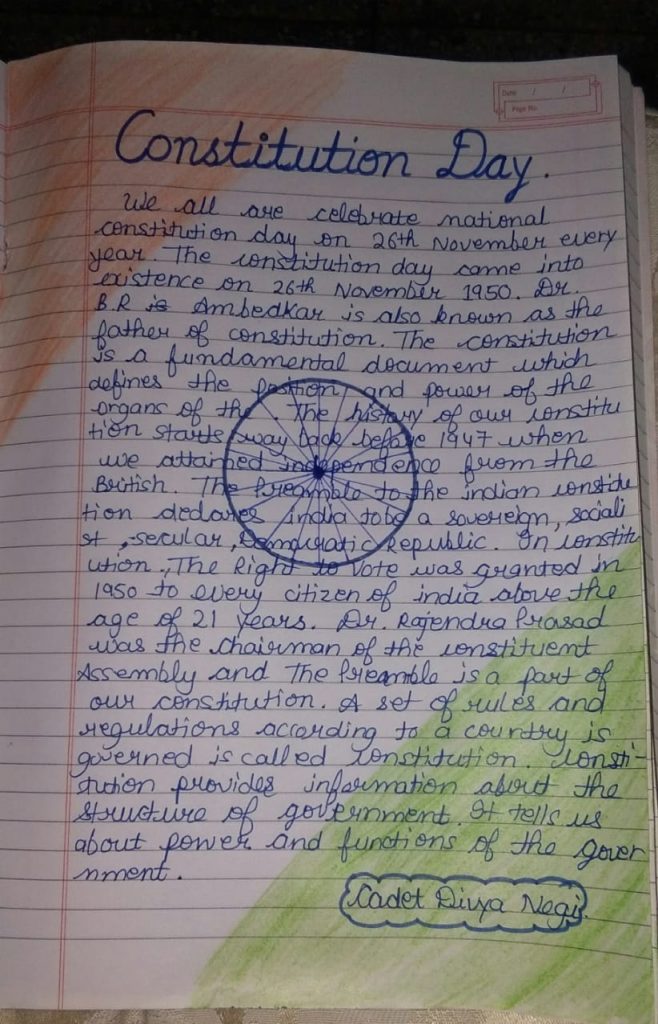 Date / /
Page No.
Constitution Day.
We all are celebrate national
constitution day on 26th November every
year. The constitution day came into
existence on 26th November 1950. Dr.
B.R is Ambedkar is also known as the
father of constitution. The constitution
is a fundamental document which
defines the position and power of the
organs of the The history of our constitu
tion starts way back before 1947 when
we attained independence from the
British. The Preamble to the indian constitu
tion declares india to be a sovereign, sociali
st, secular, Democratic Republic. In constit
ution, The Right to Vote was granted in
1950 to every citizen of india above the
age of 21 years. Dr. Rajendra Prasad
was the chairman of the constituent
Assembly and The Preamble is a part of
our constitution. A set of rules and
regulations according to a country is
governed is called constitution. Consti-
tution provides information about the
structure of government. It tells us
about power and functions of the gover
nment.
Cadet Divya Negi.